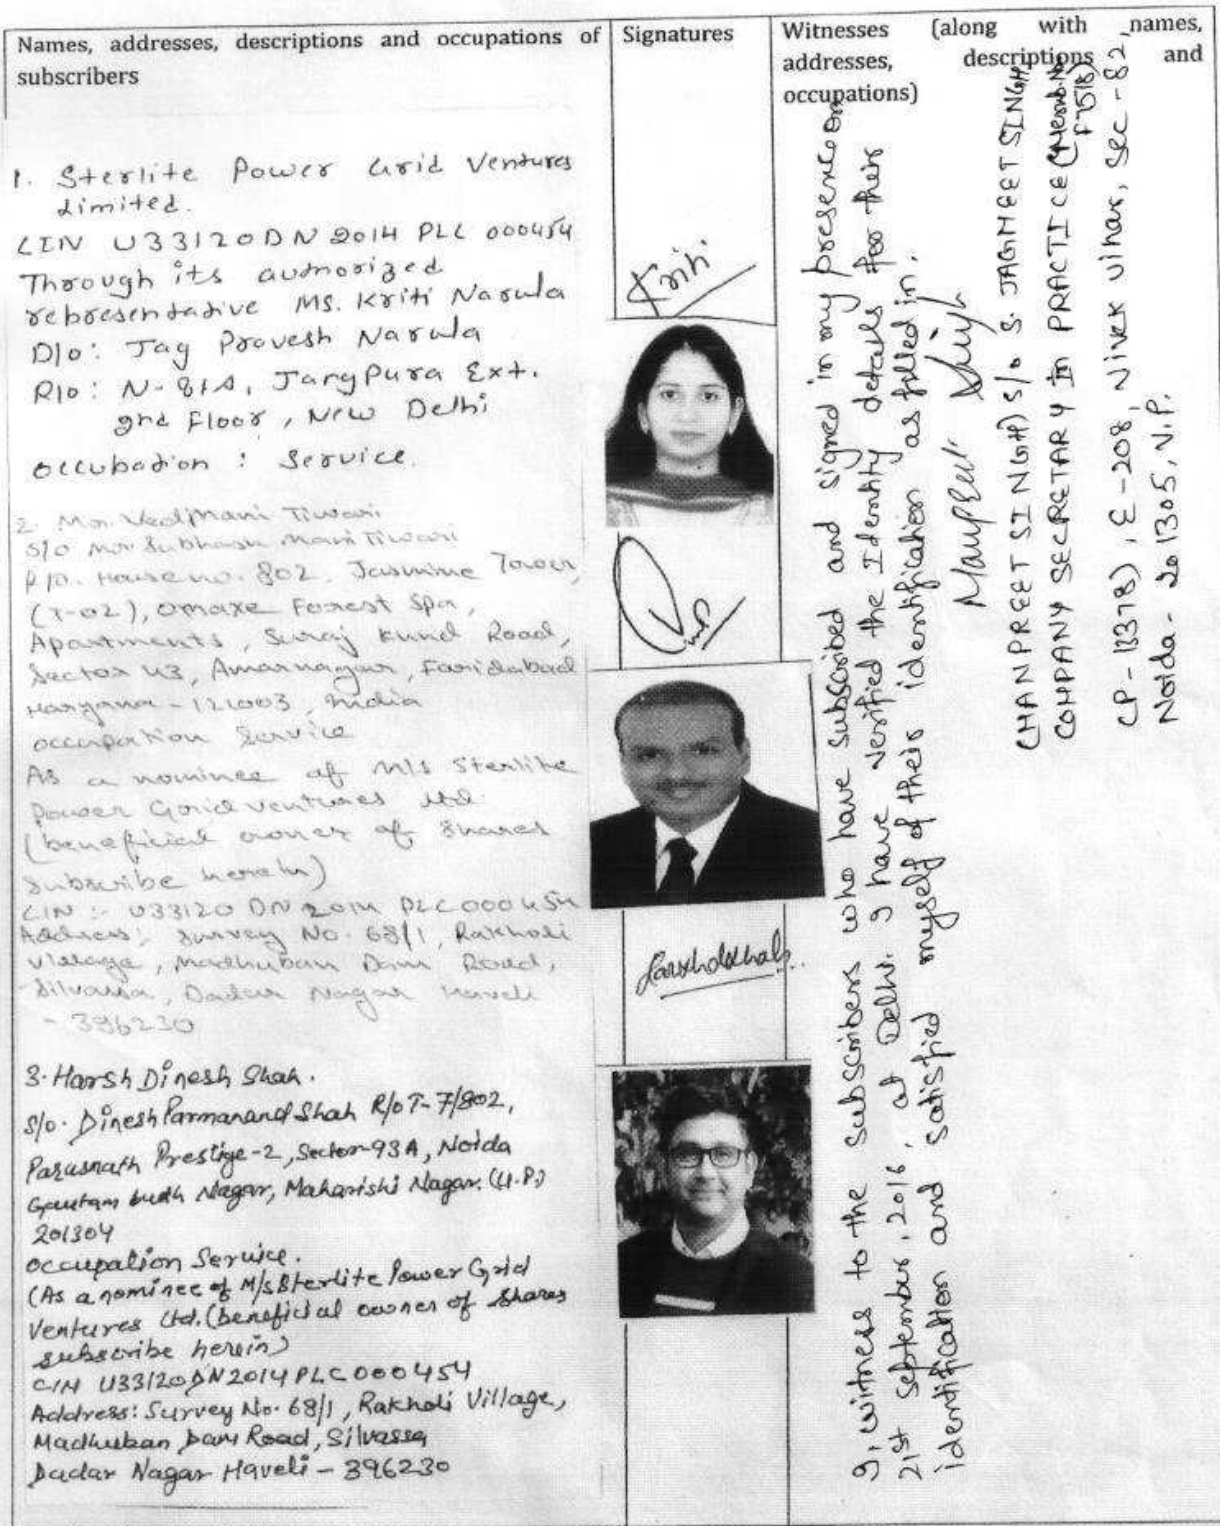 Names, addresses, descriptions and occupations of
subscribers
Signatures
Witnesses (along with names,
addresses, descriptions and
occupations)
1. Sterlite Power Grid Ventures
Limited.
CIN U33120DN2014PLC000454
Through its authorized
rebresentative Ms. Kriti Narula
D/o: Jag Pravesh Narula
R/o: N-81A, JangPura Ext.
2nd Floor, New Delhi
occubation : Service.
2. Mr. VedMani Tiwari
S/o Mr Subhash Mani Tiwari
R/o. House no. 802, Jasmine Tower,
(T-02), Omaxe Forest Spa,
Apartments, Suraj Kund Road,
Sector 43, Amarnagar, Faridabad
Haryana - 121003, India
occupation Service
As a nominee of M/s Sterlite
Power Grid Ventures Ltd.
(beneficial owner of Shares
Subscribe herein)
CIN :- U33120DN2014PLC000454
Address: Survey No. 68/1, Rakholi
Village, Madhuban Dam Road,
Silvassa, Dadar Nagar Haveli
- 396230
3. Harsh Dinesh Shah.
S/o. Dinesh Parmanand Shah R/o T-7/802,
Parasnath Prestige-2, Sector-93A, Noida
Gautam budh Nagar, Maharishi Nagar. (U.P.)
201304
occupation Service.
(As a nominee of M/s Sterlite Power Grid
Ventures Ltd. (beneficial owner of Shares
subscribe herein)
CIN U33120DN2014PLC000454
Address: Survey No. 68/1, Rakholi Village,
Madhuban Dam Road, Silvassa
Dadar Nagar Haveli - 396230
Kriti
Harshdshah
I, witness to the subscribers who have subscribed and signed in my presence on
21st September, 2016, at Delhi. I have verified the Identity details for their
identification and satisfied myself of their identification as filled in.
Manpreet Singh
(MANPREET SINGH) S/o S. JAGMEET SINGH
COMPANY SECRETARY IN PRACTICE (Memb No
F7518)
CP - 13378), E-208, Vivek Vihar, Sec - 82
Noida - 201305, U.P.